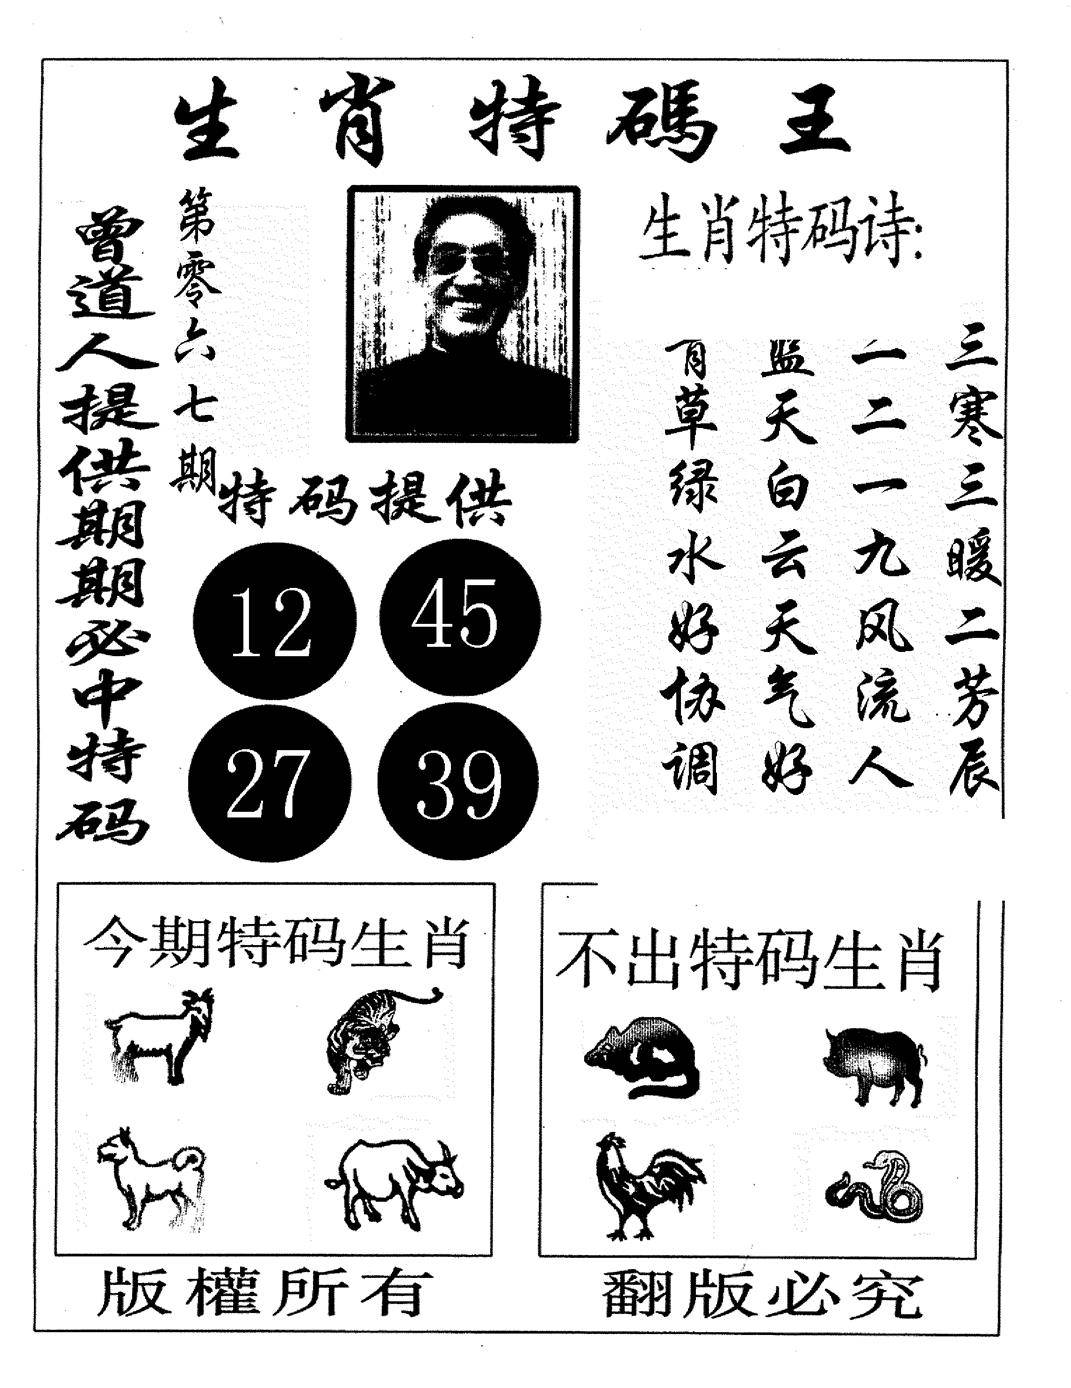 生肖特碼王
曾道人提供期期必中特码
第零六七期
生肖特码诗:
三寒三暖二芳辰
一二一九风流人
蓝天白云天气好
青草绿水好协调
特码提供
12 45
27 39
今期特码生肖
不出特码生肖
版權所有
翻版必究